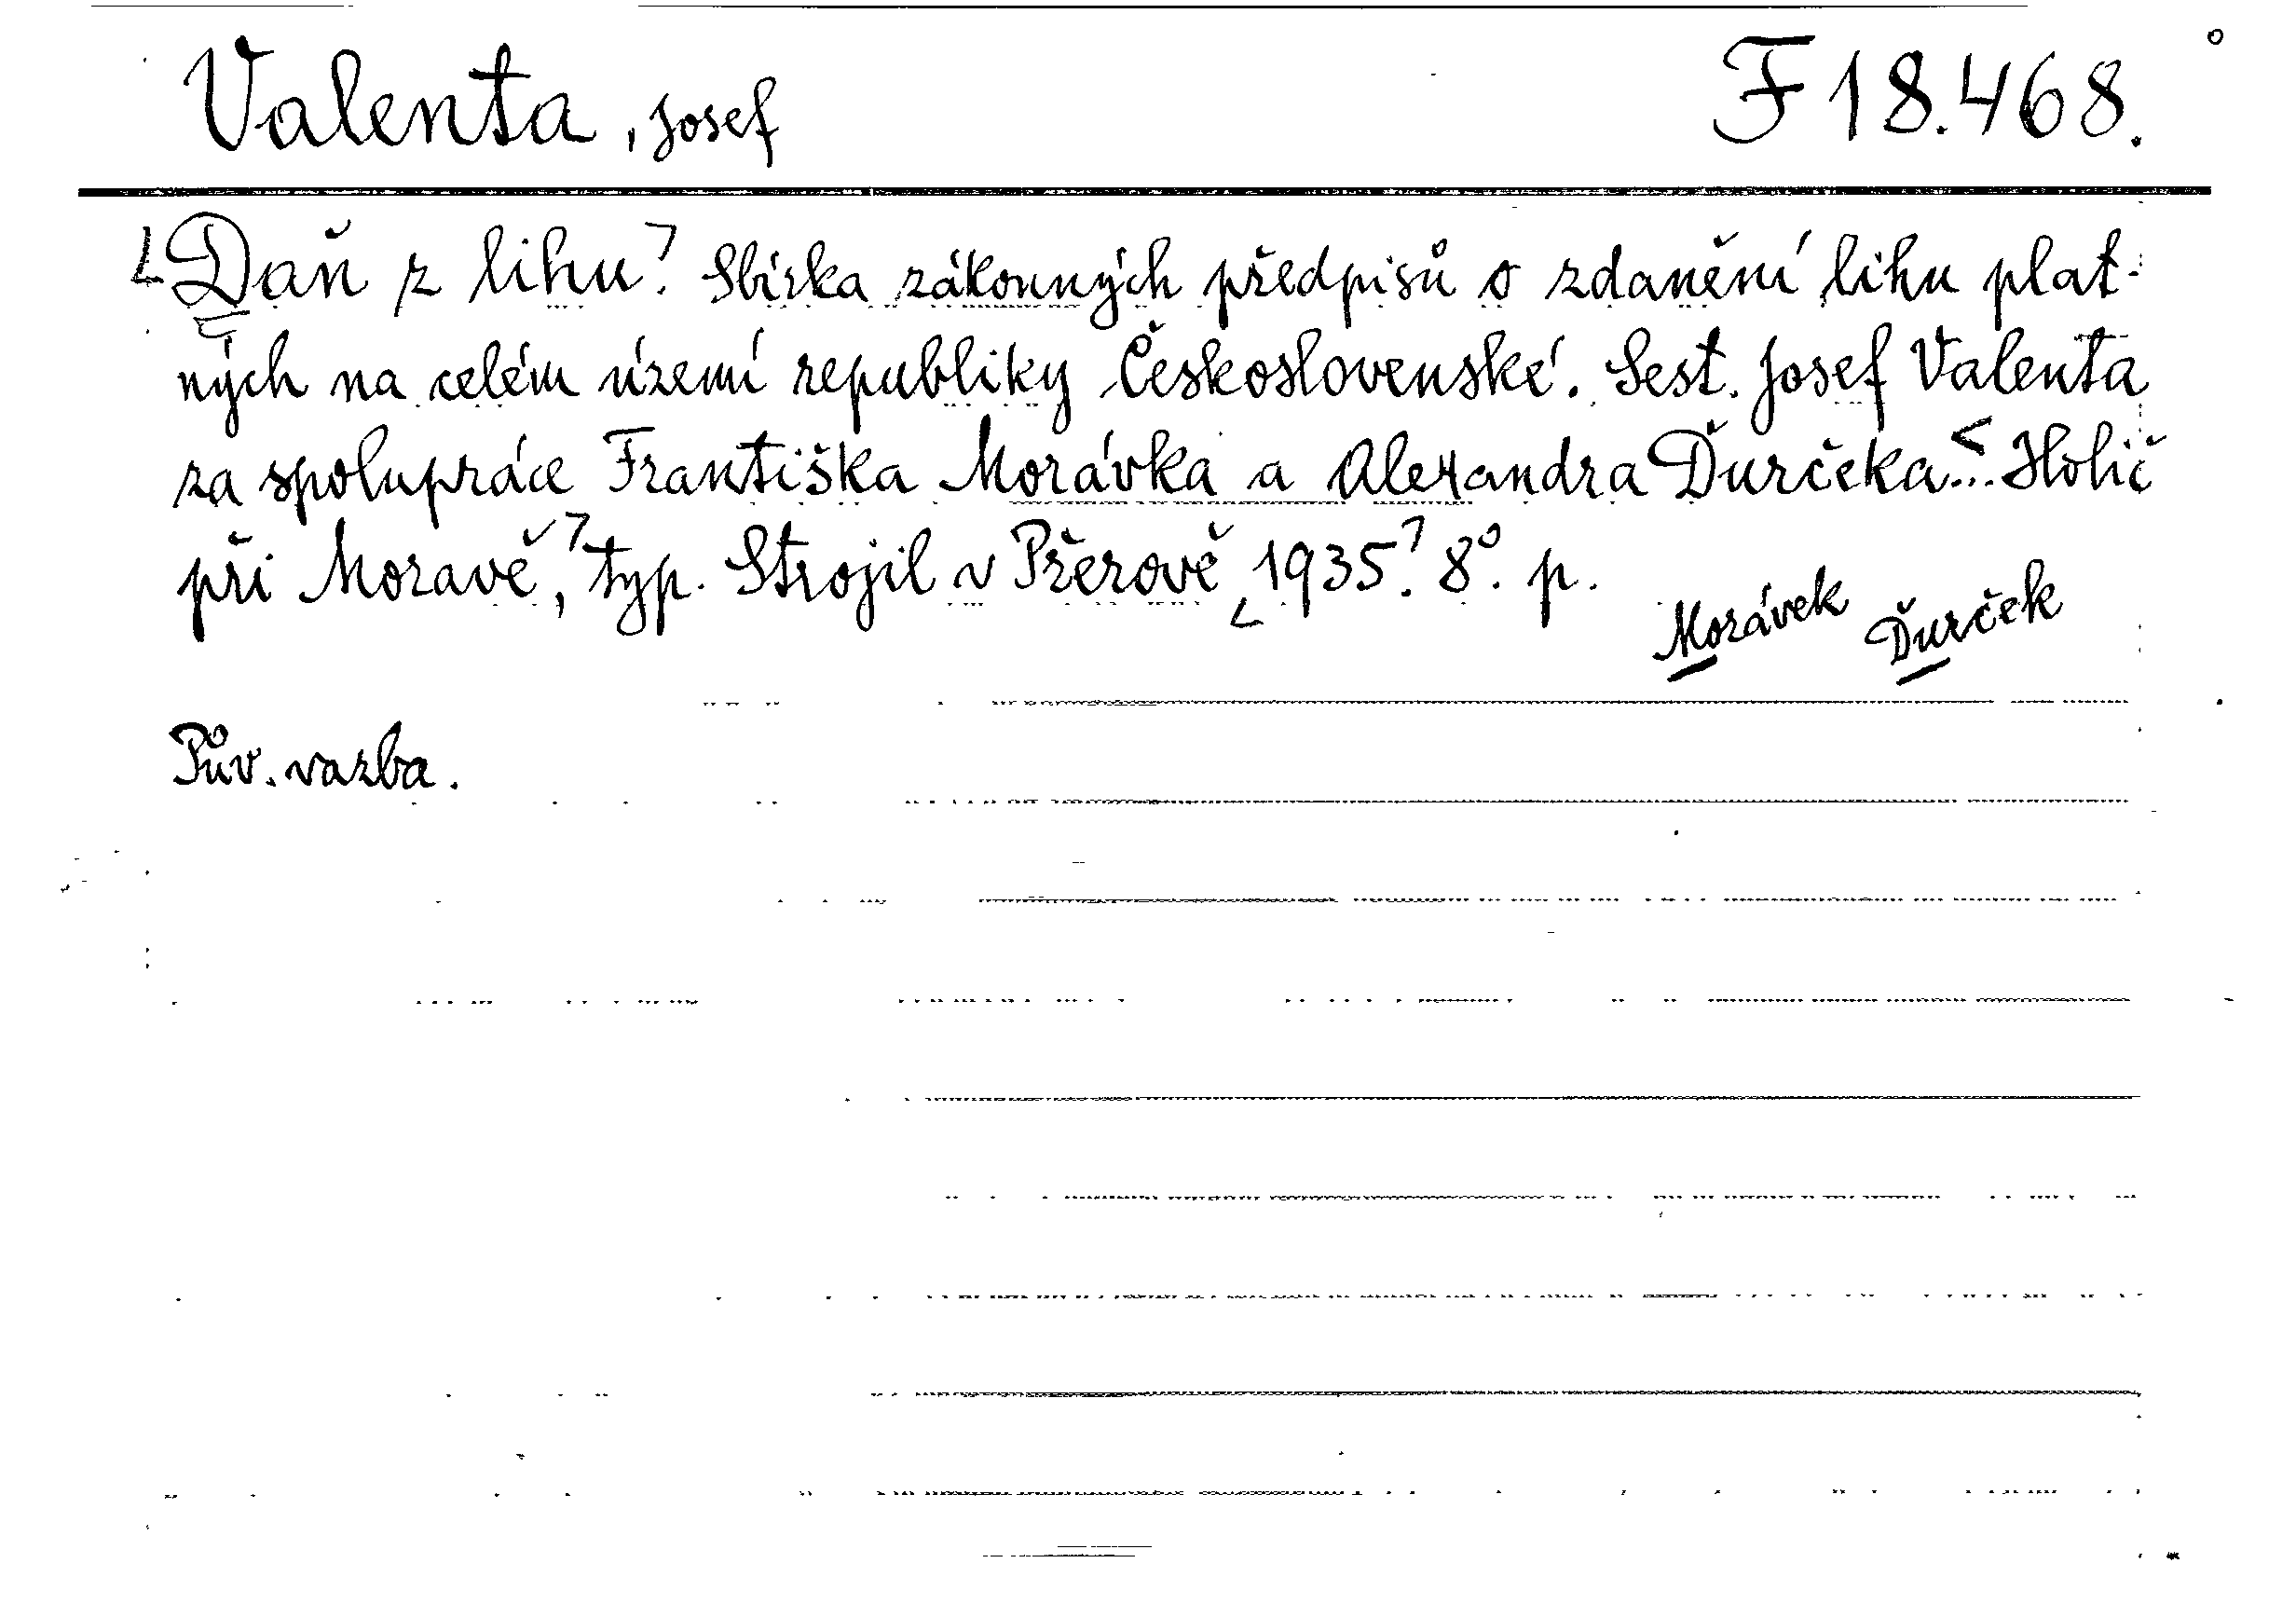 Valenta, Josef F 18.468.
Daň z lihu. Sbírka zákonných předpisů o zdanění lihu plat-
ných na celém území republiky Československé. Sest. Josef Valenta
za spolupráce Františka Morávka a Alexandra Ďurčeka... Holič
při Moravě, typ. Strojil v Přerově 1935. 8°. p.
Morávek Ďurček
Pův. vazba.